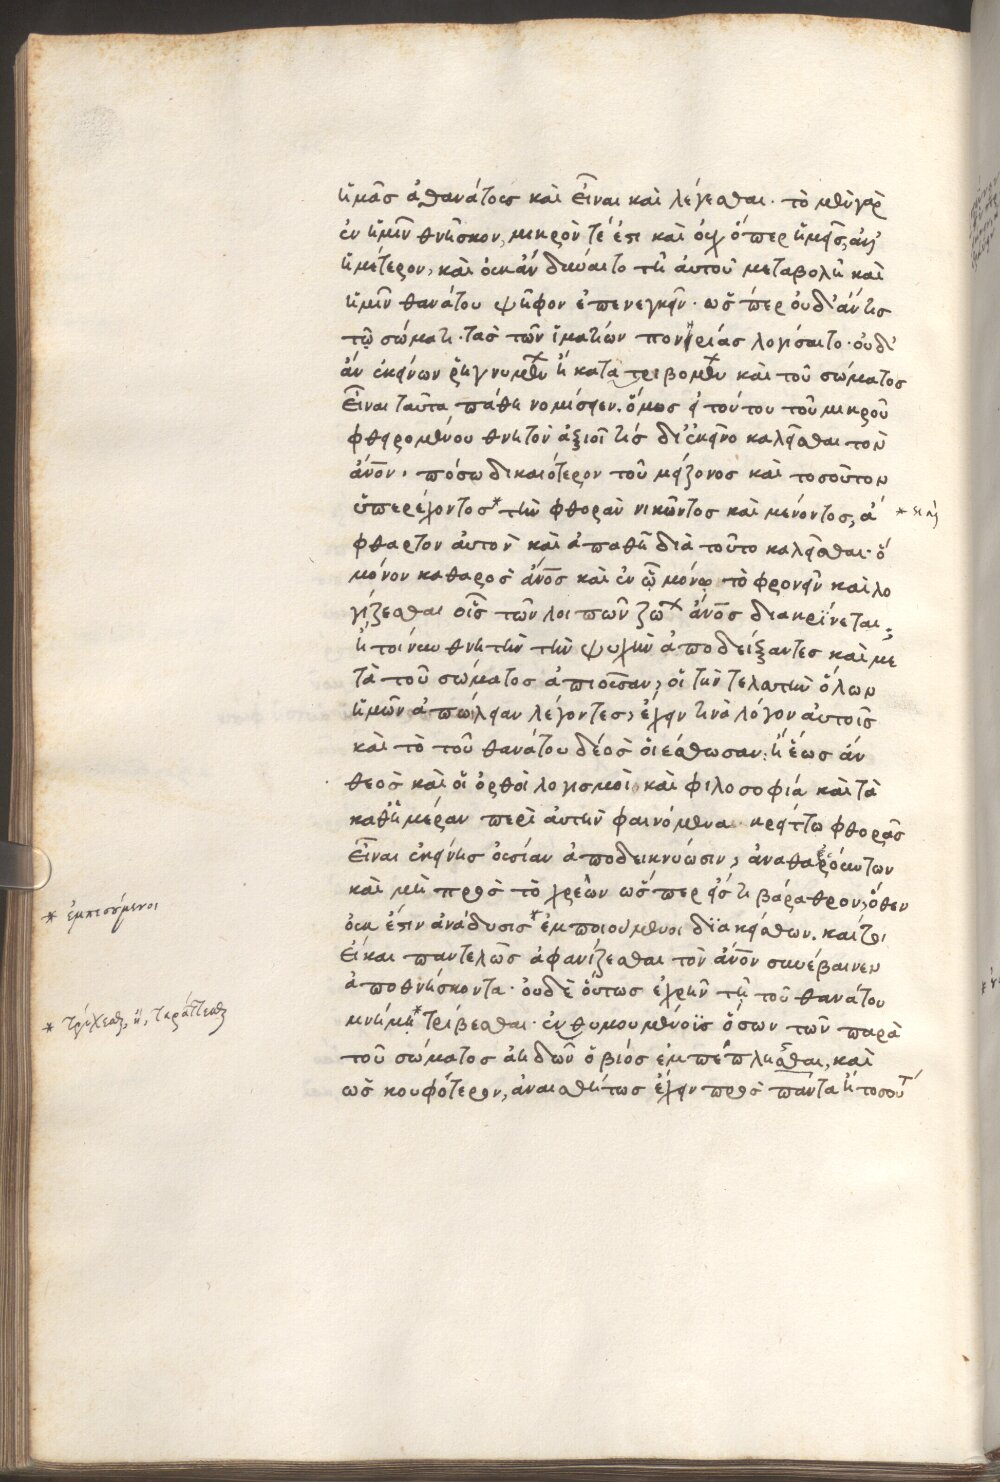 ἡμᾶσ ἀθανάτουσ καὶ εἶναι καὶ λέγεσθαι· τὸ μὲν γὰρ
ἐν ἡμῖν θνῆσκον, μικρὸν τέ ἐστι καὶ οὐχ ὅπερ ἡμεῖσ,
ἡμέτερον, καὶ οὐκ ἂν δύναιτο τῆ αὐτοῦ μεταβολῆ καὶ
ἡμῖν θανάτου ψῆφον ἐπενεγκεῖν· ὥσπερ οὐδ' ἄν τισ
τῷ σώματι τὰσ τῶν ἱματίων πονηρίασ λογίσαιτο· οὐδ'
ἂν ἐκείνων ῥηγνυμένων ἢ κατατριβομένων καὶ τοῦ σώματοσ
εἶναι ταῦτα πάθη νομίσειεν. ὅμωσ εἰ τούτου τοῦ μικροῦ
φθειρομένου θνητὸν ἀξιοῖ τίσ δι' ἐκεῖνο καλεῖσθαι τὸν
ἄνον, πόσω δικαιότερον τοῦ μείζονοσ καὶ τοσοῦτον
ὑπερέχοντοσ* τὴν φθορὰν νικῶντοσ καὶ μένοντοσ, ἄ
φθαρτον αὐτὸν καὶ ἀπαθῆ διὰ τοῦτο καλεῖσθαι· ὅ
μόνον καθαρὸσ ἄνοσ καὶ ἐν ᾧ μόνῳ τὸ φρονεῖν καὶ λο
γίζεσθαι οἷσ τῶν λοιπῶν ζώων ἄνοσ διακρίνεται·
ἢ τοίνυν θνητὴν τὴν ψυχὴν ἀποδείξαντεσ καὶ με
τὰ τοῦ σώματοσ ἀπιοῦσαν, οἱ τὴν τελευτὴν ὅλων
ἡμῶν ἀπώλειαν λέγοντεσ, ἔχειν τινὰ λόγον αὐτοῖσ
καὶ τὸ τοῦ θανάτου δέοσ οἰέσθωσαν· ἢ ἕωσ ἂν
θεὸσ καὶ οἱ ὀρθοὶ λογισμοὶ καὶ φιλοσοφία καὶ τὰ
καθ' ἡμέραν περὶ αὐτὴν φαινόμενα κρείττω φθορᾶσ
εἶναι ἐκείνησ οὐσίαν ἀποδεικνύωσιν, ἀναθαρρούντων
καὶ μὴ πρὸσ τὸ χρεὼν ὥσπερ εἴσ τι βάραθρον, ὅθεν
οὐκ ἔστιν ἀνάδυσισ* ἐμποιούμενοι διακείσθων. καίτοι
εἰ καὶ παντελῶσ ἀφανίζεσθαι τὸν ἄνον συνέβαινεν
ἀποθνήσκοντα· οὐδὲ οὕτωσ ἐχρῆν τῆ τοῦ θανάτου
μνήμη* τρίβεσθαι· ἐνθυμουμένοισ ὅσων τῶν παρὰ
τοῦ σώματοσ ἀηδῶν ὁ βίοσ ἐμπέπλησθαι, καὶ
ὡσ κουφότερον, ἀναισθήτωσ ἔχειν πρὸσ πάντα ἢ τοσού
* ἐμπεσούμενοι
* τρύχεσθαι, ἢ, ταράττεσθαι